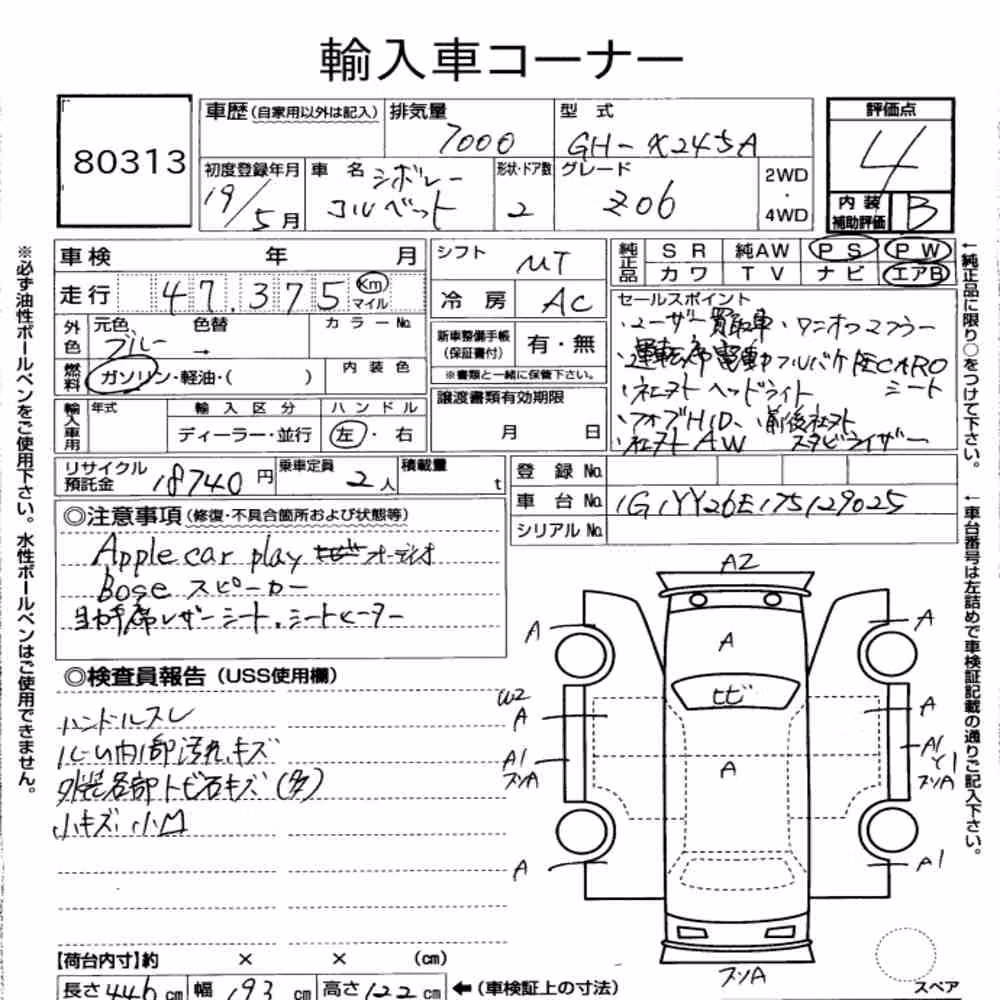 輸入車コーナー
80313
車歴(自家用以外は記入) 排気量 7000 型式 GH-X245A 評価点 4
初度登録年月 19/5月 車名 シボレー コルベット 形状・ドア数 2 グレード Z06 2WD・4WD 内装補助評価 B
車検 年 月 シフト MT 純正品 SR 純AW PS PW
走行 47,375 Km マイル 冷房 AC カワ TV ナビ エアB
外色 元色 ブルー 色替 → カラーNo.
新車整備手帳(保証書付) 有・無
※書類と一緒に保管下さい。
燃料 ガソリン・軽油・( ) 内装色
輸入車用 年式 輸入区分 ハンドル
ディーラー・並行 左・右
譲渡書類有効期限 月 日
セールスポイント
・ユーザー買取車・ワンオフマフラー
・運転席電動フルバケRECARO
シート
・社外ヘッドライト
・フォグHID、前後社外
・社外AW スタビライザー
リサイクル預託金 18740円 乗車定員 2人 積載量 t
登録No.
車台No. 1G1YY26E175129025
シリアルNo.
◎注意事項(修復・不具合箇所および状態等)
Apple car play オーディオ
Bose スピーカー
助手席レザーシート、シートヒーター
◎検査員報告(USS使用欄)
ハンドルスレ
ルーム内部汚れキズ
外装各部トビ石キズ(多)
小キズ、小凹
A2
A
A
A
ヒビ
W2
A
A
A1
ブソA
A
A1
Y1
ブソA
A
A1
ブソA
スペア
【荷台内寸】約 × × (cm)
長さ 446cm 幅 193cm 高さ 122cm ←(車検証上の寸法)
※必ず油性ボールペンをご使用下さい。水性ボールペンはご使用できません。
←純正品に限り○をつけて下さい。
←車台番号は左詰めで車検証記載の通りご記入下さい。